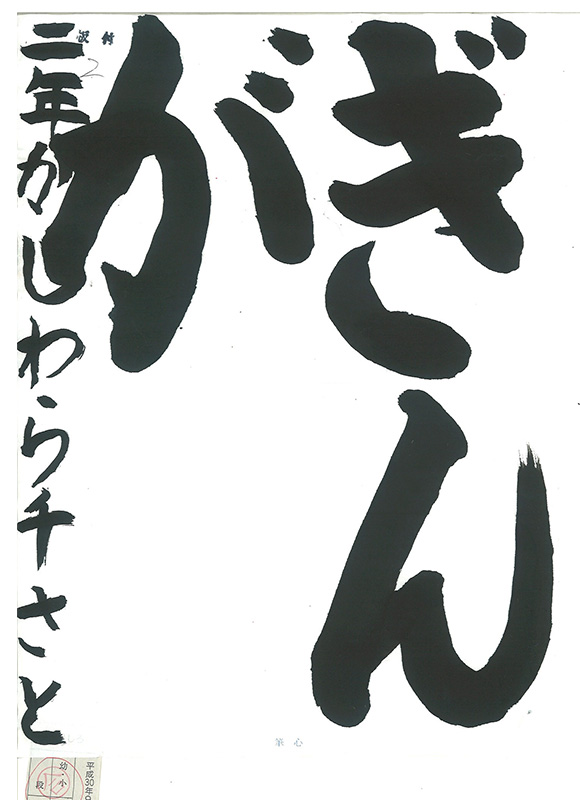 ぎん
が
二年かしわら千さと
筆心
平成30年
幼・小
段